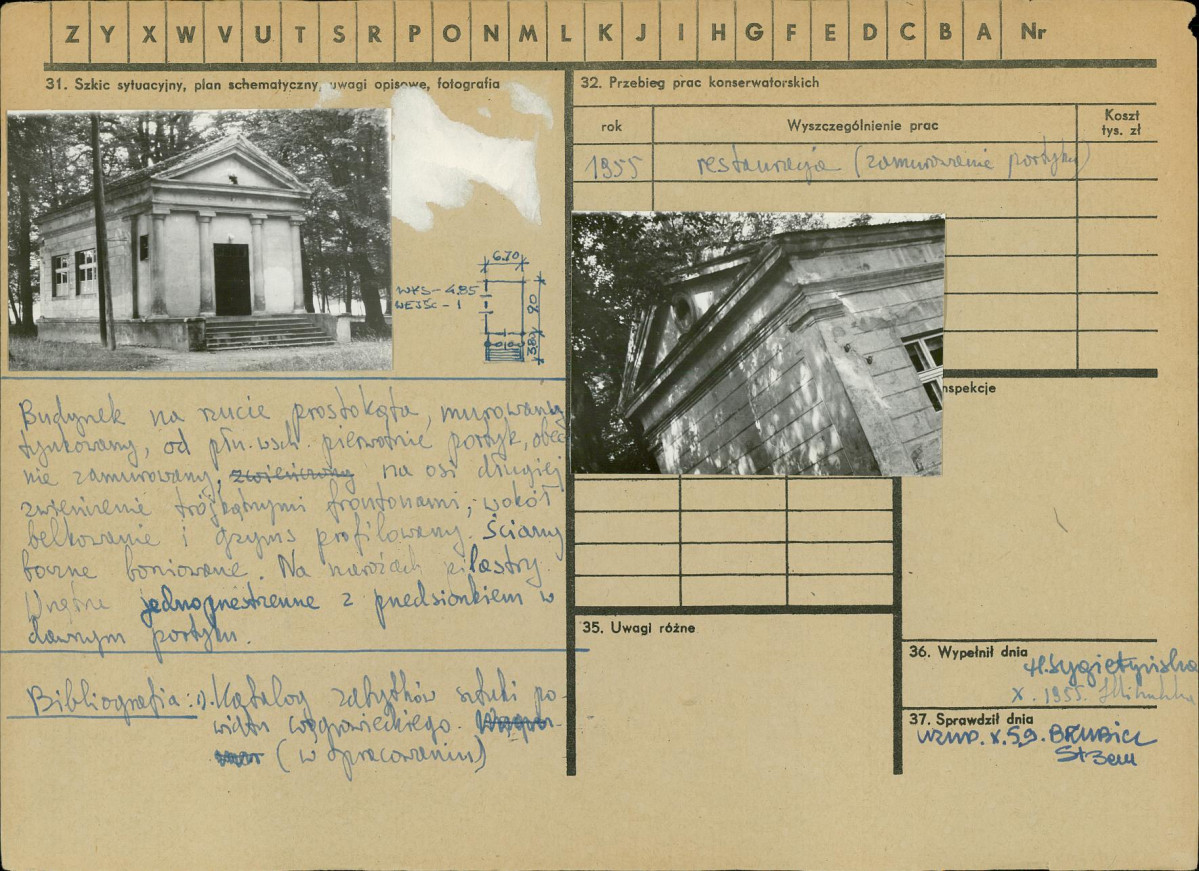 Z Y X W V U T S R P O N M L K J I H G F E D C B A Nr
31. Szkic sytuacyjny, plan schematyczny, uwagi opisowe, fotografia
6.70
WYS – 4.85
WEJŚĆ – 1
90
3.80
Budynek na rzucie prostokąta, murowany
tynkowany, od płn. wsch. pierwotnie portyk, obec
nie zamurowany, zwieńczony na osi drugiej
zwieńczenie trójkątnymi frontonami; wokół
belkowanie i gzyms profilowany. Ściany
boczne boniowane. Na narożach pilastry.
Wnętrze jednoprzestrzenne z przedsionkiem w
dawnym portyku.
Bibliografia: 1). Katalog zabytków sztuki po-
wiatu węgrowieckiego.
(w opracowaniu)
32. Przebieg prac konserwatorskich
rok Wyszczególnienie prac Koszt
tys. zł
1955 restauracja (zamurowanie portyku)
nspekcje
35. Uwagi różne
36. Wypełnił dnia
H. Sygietyńska
X. 1955.
37. Sprawdził dnia